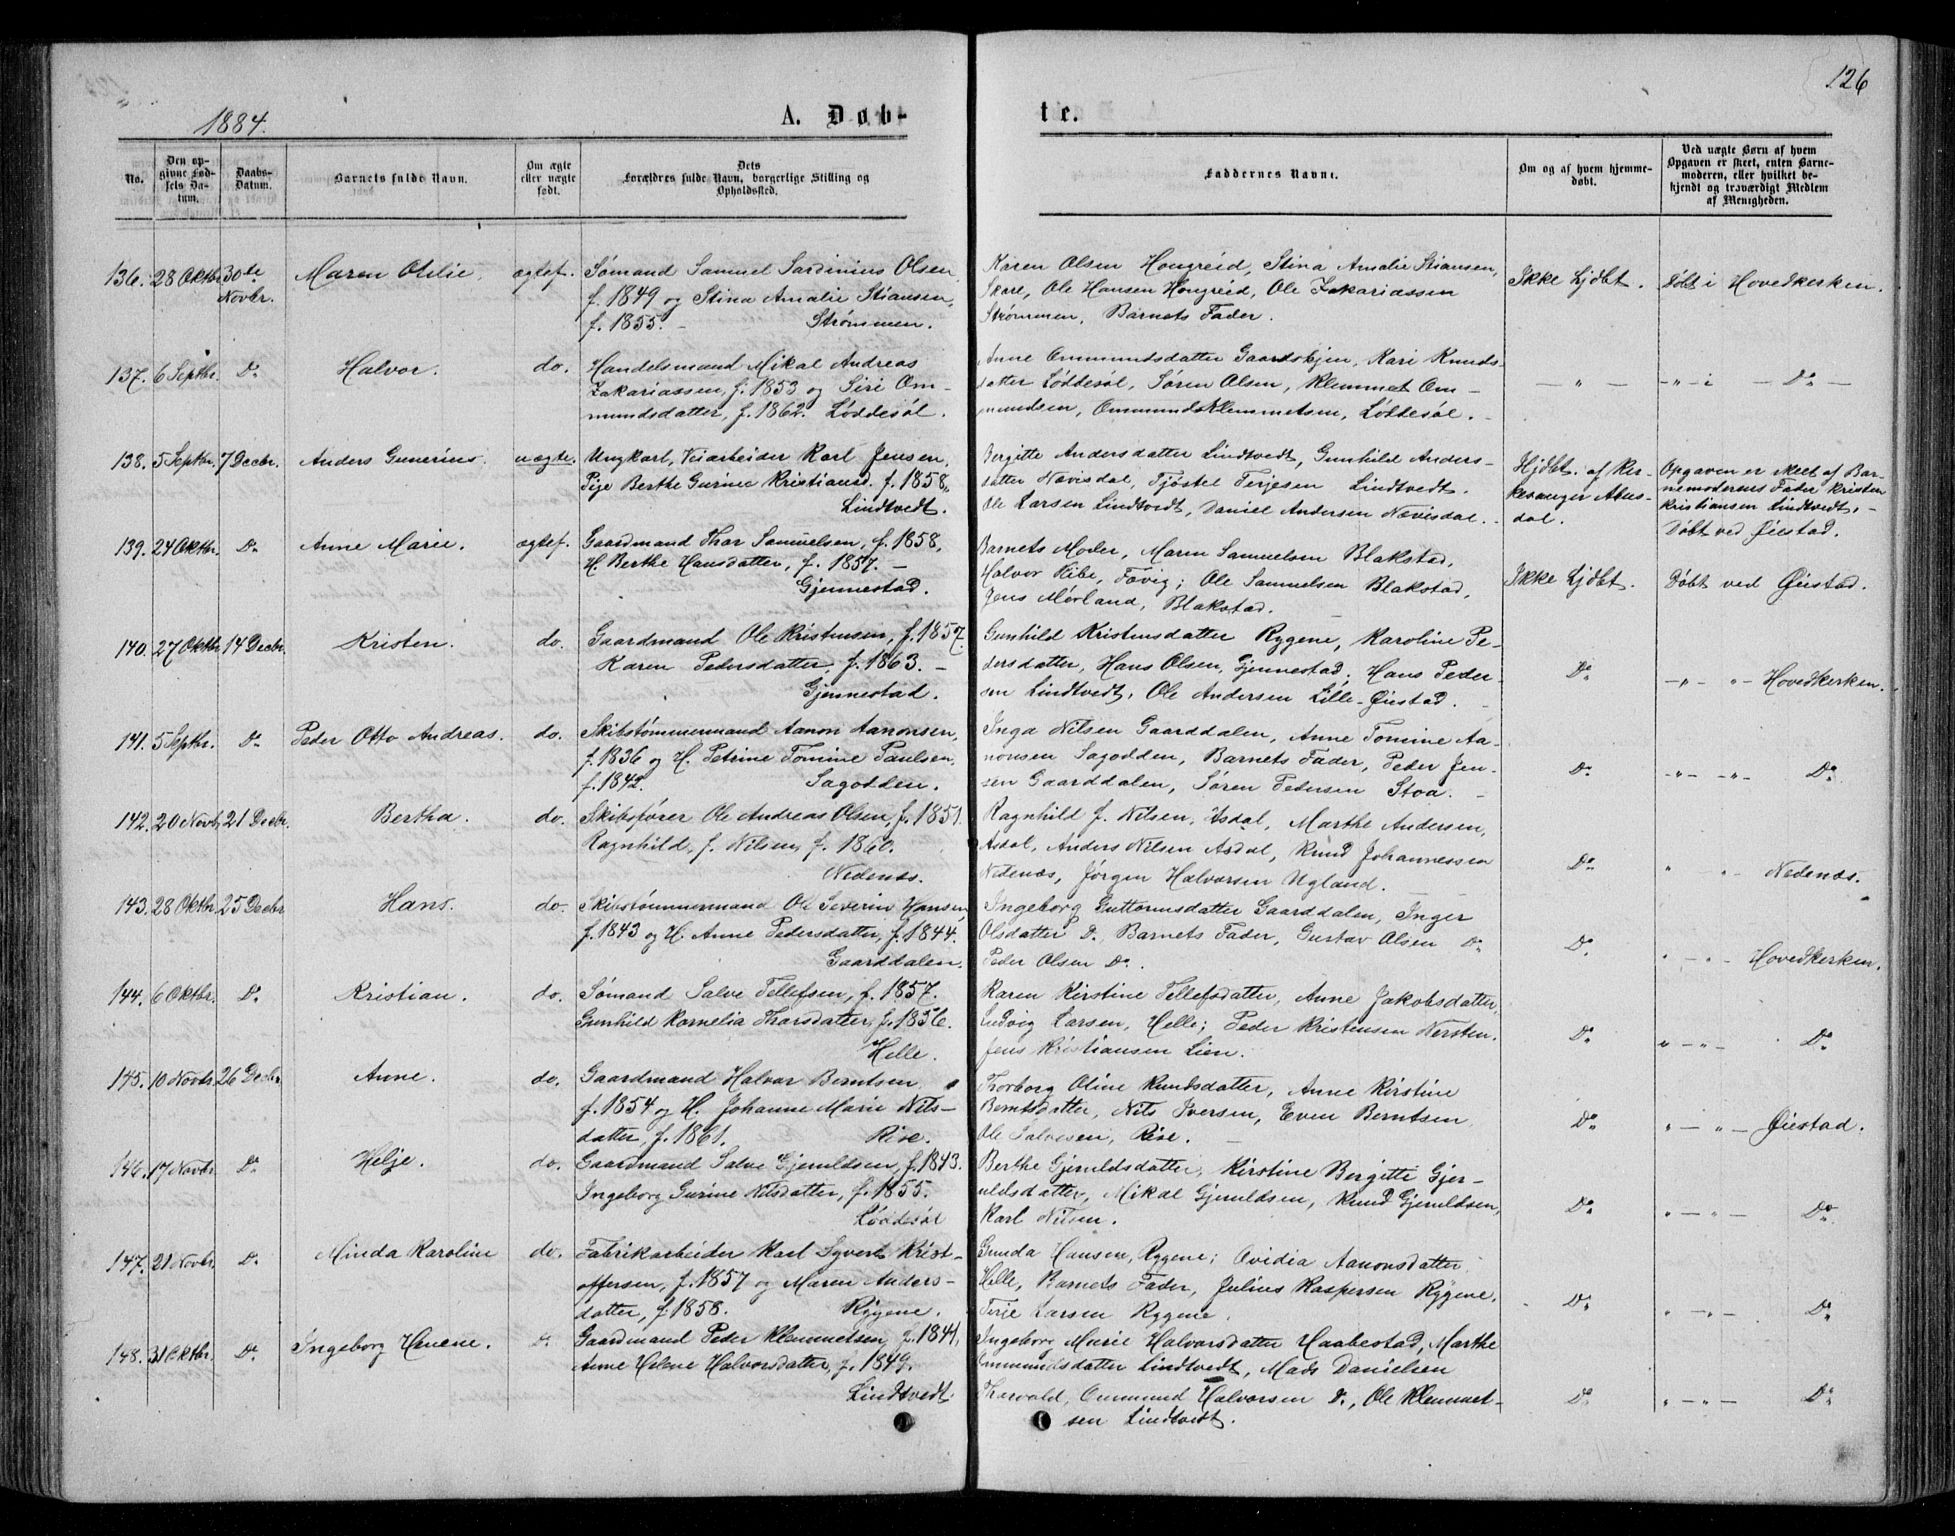 126
1884.
A. Døb-
te.
No.
Den op-
givne Fød-
sels Da-
tum.
Daabs-
Datum.
Barnets fulde Navn.
Om ægte
eller uægte
født.
Dets
Forældres fulde Navn, borgerlige Stilling og
Opholdssted.
Faddernes Navne.
Om og af hvem hjemme-
døbt.
Ved uægte Børn af hvem
Opgaven er skeet, enten Barne-
moderen, eller hvilket be-
kjendt og troværdigt Medlem
af Menigheden.
136. 28 Oktbr. 30te Novbr. Maren Otilie. ægtef.
Sømand Samuel Sardinius Olsen,
f. 1849 og Stina Amalie Stiansen,
f. 1855. - Strømmen.
Karen Olsen Hongreid, Stina Amalie Stiansen,
Skare, Ole Hansen Hongreid, Ole Zakariassen
Strømmen, Barnets Fader.
Ikke hjdbt.
Døbt i Hovedkerken.
137. 6 Septbr. Do Halvor. do.
Handelsmand Mikal Andreas
Zakariassen, f. 1853 og Siri Om-
mundsdatter, f. 1862. Løddesøl.
Anne Ommundsdatter Gaardskjen, Kari Knuds-
datter Løddesøl, Søren Olsen, Klemmet Om-
mundsen, Ommund Klemmetsen, Løddesøl.
— " —
— " — i — Do —
138. 5 Septbr. 7 Decbr. Anders Gunerius. uægte.
Ungkarl, Veiarbeider Karl Jensen,
Pige Berthe Gurine Kristiansd. f. 1858,
Lindtvedt.
Bergitte Andersdatter Lindtvedt, Gunhild Anders-
datter Nævisdal, Tjøstel Terjesen Lindtvedt.
Ole Larsen Lindtvedt, Daniel Andersen Nævisdal.
Hjdbt. af Kir-
kesanger Abus-
dal.
Opgaven er skeet af Bar-
nemoderens Fader Kristen
Kristiansen Lindtvedt. -
Døbt ved Øiestad.
139. 24 Oktbr. Do Anne Marie. ægtef.
Gaardmand Thor Samuelsen, f. 1858,
H. Berthe Hansdatter, f. 1857. -
Gjennestad.
Barnets Moder, Maren Samuelsen Blakstad,
Halvor Ribe, Fævig; Ole Samuelsen Blakstad,
Jens Mørland, Blakstad.
Ikke hjdbt.
Døbt ved Øiestad.
140. 27 Oktbr. 14 Decbr. Kristen. do.
Gaardmand Ole Kristensen, f. 1857.
Karen Pedersdatter, f. 1863. -
Gjennestad.
Gunhild Kristensdatter Rygene, Karoline Pe-
dersdatter, Hans Olsen, Gjennestad; Hans Peder-
sen Lindtvedt, Ole Andersen Lille-Øiestad.
Do
— " — " — Hovedkerken.
141. 5 Septbr. Do Peder Otto Andreas. do.
Skibstømmermand Aanon Aanonsen,
f. 1836 og H. Petrine Tomine Paulsen,
f. 1842. Sagodden.
Inga Nilsen Gaarddalen, Anne Tomine Aa-
nonsen Sagodden, Barnets Fader, Peder Jen-
sen Gaarddalen, Søren Pedersen Stoa.
Do
— " — — " — Do
142. 20 Novb. 21 Decbr. Bertha. do.
Skibsfører Ole Andreas Olsen, f. 1851.
Ragnhild, f. Nilsen, f. 1860.
Nedenæs.
Ragnhild f. Nilsen, Asdal, Marthe Andersen,
Asdal, Anders Nilsen Asdal, Knud Johannessen
Nedenæs, Jørgen Halvorsen Ugland.
Do
" — " — Nedenæs.
143. 28 Oktbr. 25 Decbr Hans. do.
Skibstømmermand Ole Severin Hansen,
f. 1843 og H. Anne Pedersdatter, f. 1844.
Gaarddalen.
Ingeborg Guttormsdatter Gaarddalen, Inger
Olsdatter Do, Barnets Fader, Gustav Olsen Do
Peder Olsen Do.
Do
" — " — Hovedkerken.
144. 6 Oktbr. Do Kristian. do.
Sømand Salve Tellefsen, f. 1857.
Gunhild Kornelia Thorsdatter, f. 1856.
Helle.
Karen Kirstine Tellefsdatter, Anne Jakobsdatter,
Ludvig Larsen, Helle; Peder Kristensen Nersten,
Jens Kristiansen Lien.
Do
" — " — Do
145. 10 Novbr. 26 Decbr. Anne. do.
Gaardmand Halvor Berntsen
f. 1854 og H. Johanne Marie Nils-
datter, f. 1861. Rise.
Thorborg Oline Knudsdatter, Anne Kirstine
Berntsdatter, Nils Iversen, Even Berntsen
Ole Salvesen, Rise.
Do
" — " — Øiestad.
146. 17 Novbr. Do Helje. do.
Gaardmand Salve Gjeruldsen, f. 1843.
Ingeborg Gurine Nilsdatter, f. 1855.
Løddesøl
Berthe Gjeruldsdatter, Kirstine Bergitte Gjer-
uldsdatter, Mikal Gjeruldsen, Knud Gjeruldsen,
Karl Nilsen.
Do
" — " — Do
147. 21 Novbr. Do Minda Karoline do.
Fabrikarbeider Karl Syvert Krist-
offersen, f. 1857 og Maren Anders-
datter, f. 1858. Rygene.
Gunda Hansen, Rygene; Ovidia Aanonsdatter
Helle, Barnets Fader, Julius Kaspersen Rygene,
Terje Larsen Rygene.
Do
" — " — Do
148. 31 Oktbr. Do Ingeborg Helene. Do
Gaardmand Peder Klemmetsen, f. 1841,
Anne Helene Halvorsdatter, f. 1849.
Lindtvedt.
Ingeborg Marie Halvorsdatter Haabestad, Marthe
Ommundsdatter Lindtvedt, Mads Danielsen
Thorvald, Ommund Halvorsen Do, Ole Klemmet-
sen Lindtvedt.
Do
" — " — Do